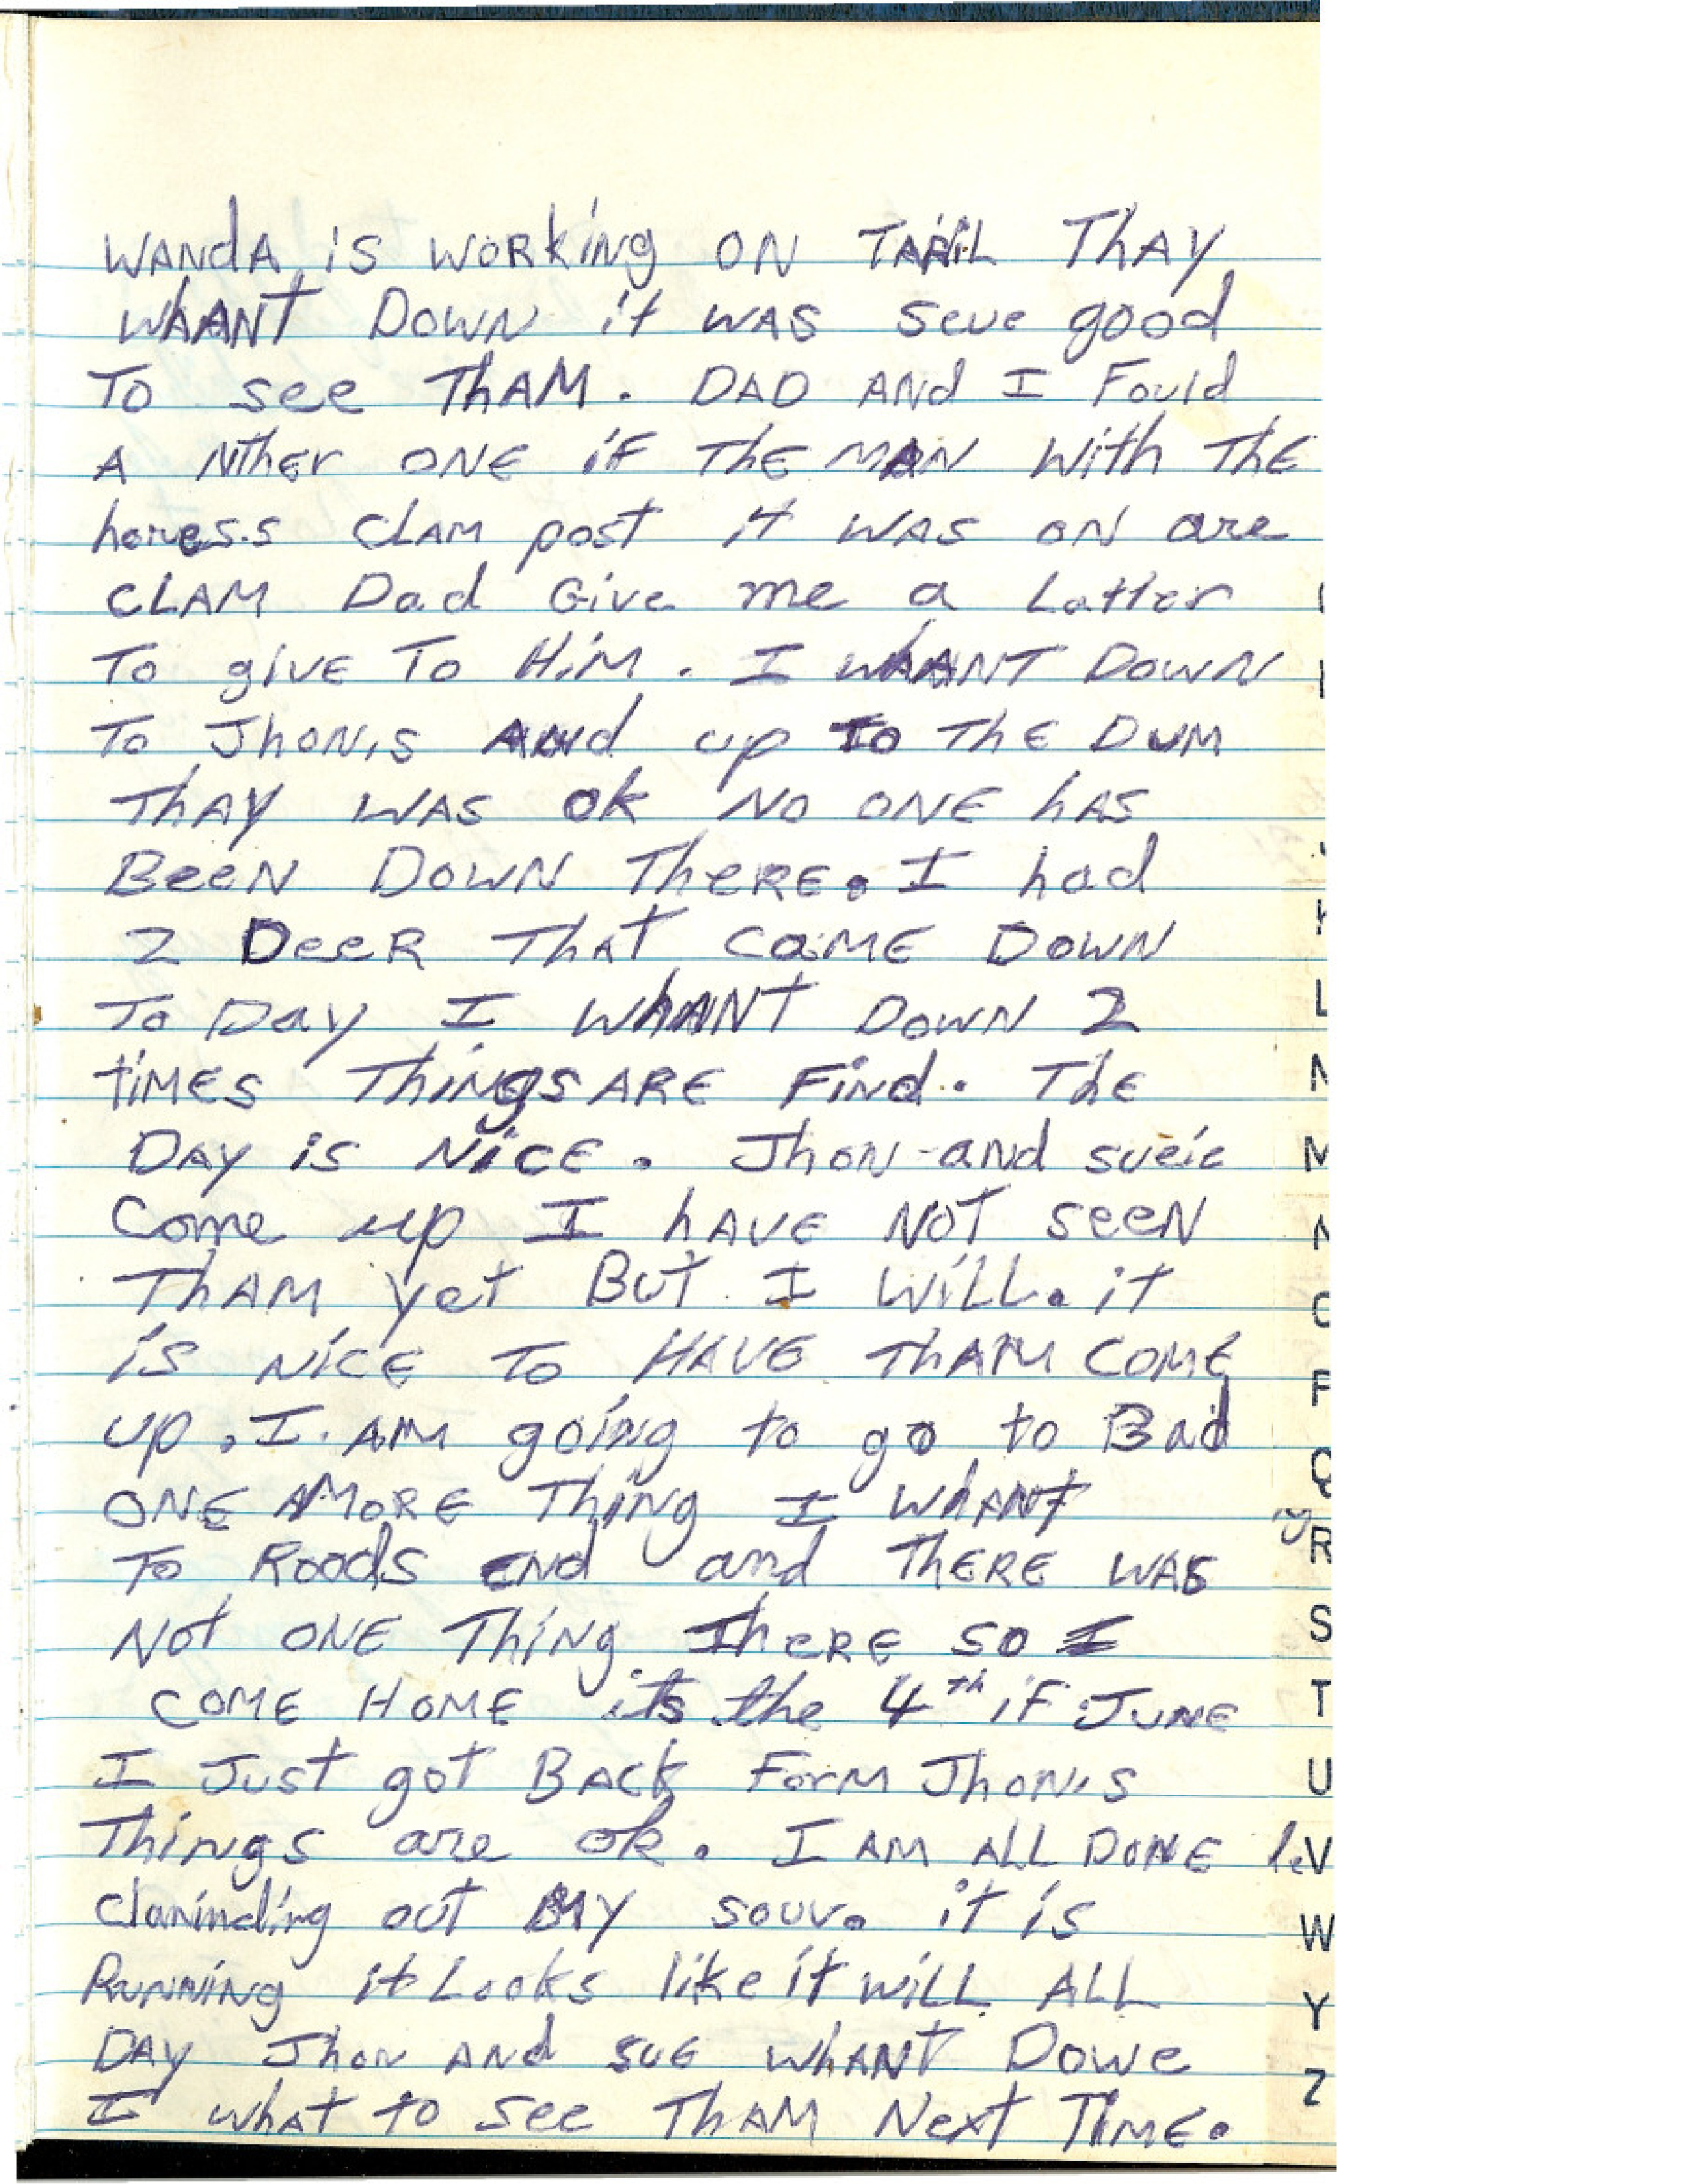 WANdA is WORKiNg ON TARiL ThAY
WhANT DOWN it WAS Seue good
To see ThAM. DAD ANd I Fould
A NtheR ONE iF ThE MAN With ThE
horess CLAM post it WAS ON are
CLAM Dad Give me a Latter
To giVE To HiM. I WhANT DOWN
To JhoN,s ANd up To ThE DUM
ThAY WAS ok No ONE hAS
BeeN DOWN TheRE. I had
2 DeeR ThaT CaME DOWN
To Day I WhANT DOWN 2
tiMES ThiNgS ARE FiNd. ThE
DAY iS NiCE. JhoN and sueie
Come up I hAVE NoT seeN
ThAM yet BuT I WiLL. it
iS NiCE To HAVE ThAM COME
up. I AM goiNg to go to Bad
ONE MORE ThiNg I WhANT
To Roods eNd and ThERE WAS
Not ONE ThiNg TheRE SO I
COME HOME its the 4th iF JUNE
I Just got BACk ForM JhoN,s
ThiNgs are ok. I AM ALL DONE
out MY souv. it is
RuNNiNg it Looks like it WiLL ALL
DAY JhoN ANd SUE WhANT Dowe
I what to see ThAM Next TiME.
L
M
N
R
S
T
U
V
W
Y
Z